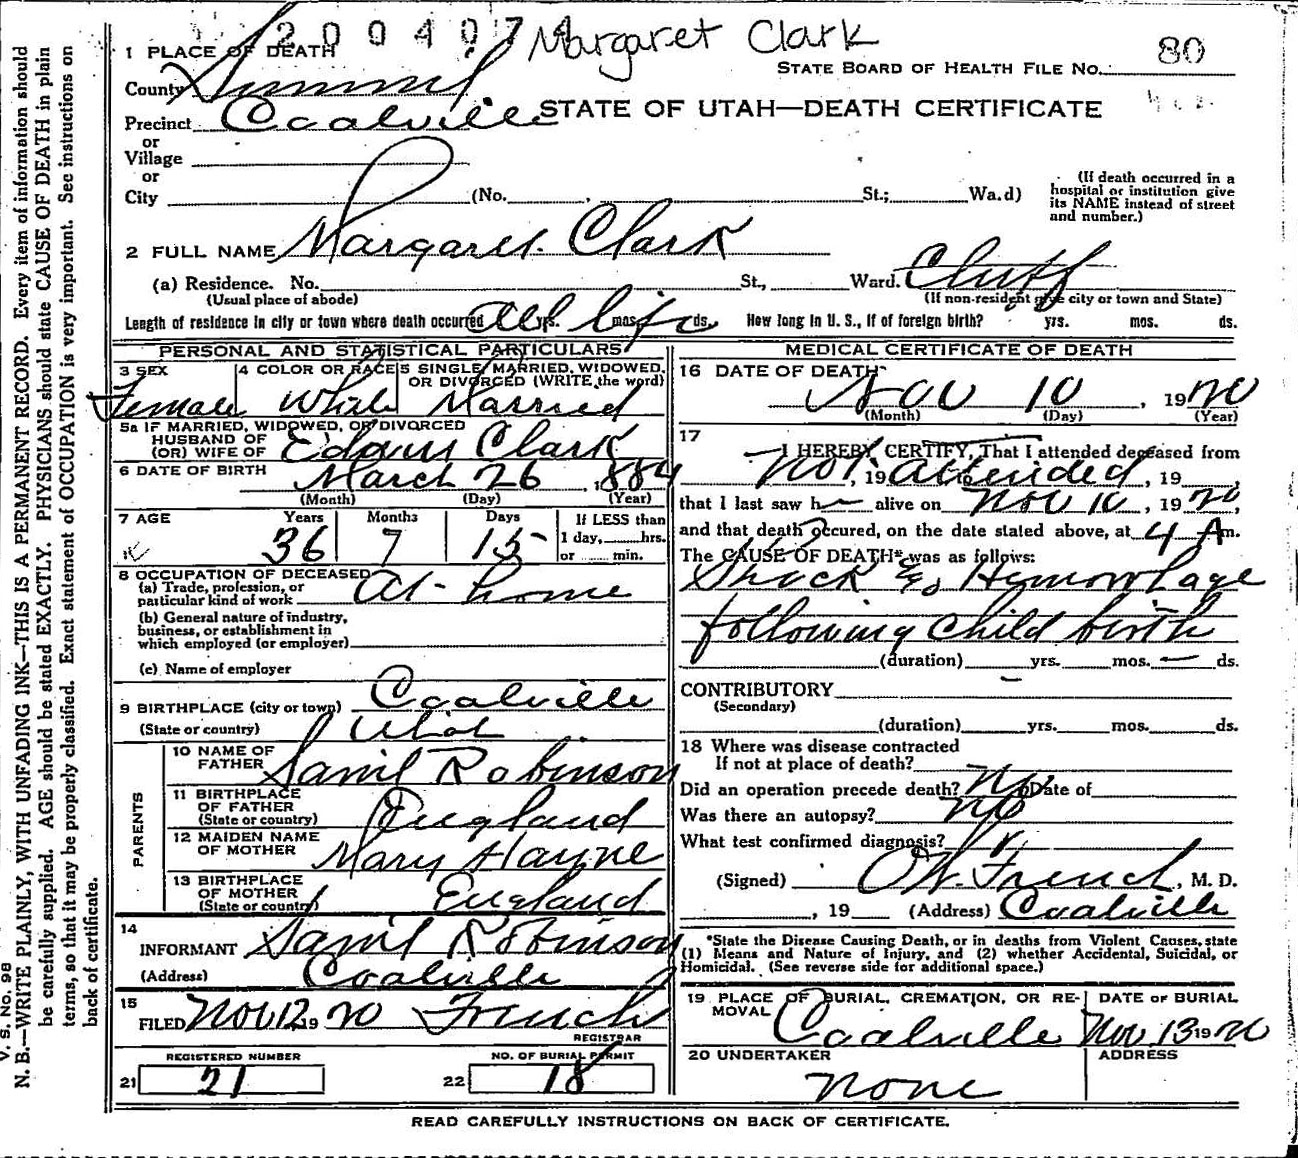 2004074 Margaret Clark
1 PLACE OF DEATH
STATE BOARD OF HEALTH FILE NO. 80
County Summit
Precinct Coalville STATE OF UTAH—DEATH CERTIFICATE
or
Village
or
City (No. St.; Wa.d)
(If death occurred in a
hospital or institution give
its NAME instead of street
and number.)
2 FULL NAME Margaret Clark
(a) Residence. No. St., Ward. Cluff
(Usual place of abode) (If non-resident give city or town and State)
Length of residence in city or town where death occurred All life yrs. mos. ds. How long in U. S., if of foreign birth? yrs. mos. ds.
PERSONAL AND STATISTICAL PARTICULARS
3 SEX 4 COLOR OR RACE 5 SINGLE, MARRIED, WIDOWED,
OR DIVORCED (WRITE the word)
Female White Married
5a IF MARRIED, WIDOWED, OR DIVORCED
HUSBAND OF
(OR) WIFE OF Edwin Clark
6 DATE OF BIRTH March 26, 1884
(Month) (Day) (Year)
7 AGE Years Months Days If LESS than
36 7 15 1 day, hrs.
or min.
8 OCCUPATION OF DECEASED
(a) Trade, profession, or
particular kind of work At home
(b) General nature of industry,
business, or establishment in
which employed (or employer)
(c) Name of employer
9 BIRTHPLACE (city or town) Coalville
(State or country) Utah
PARENTS
10 NAME OF
FATHER Saml Robinson
11 BIRTHPLACE
OF FATHER
(State or country) England
12 MAIDEN NAME
OF MOTHER Mary Hayne
13 BIRTHPLACE
OF MOTHER
(State or country) England
14
INFORMANT Saml Robinson
(Address) Coalville
15
FILED Nov 12 19 20 French
REGISTRAR
REGISTERED NUMBER NO. OF BURIAL PERMIT
21 21 22 18
MEDICAL CERTIFICATE OF DEATH
16 DATE OF DEATH
Nov 10, 1920
(Month) (Day) (Year)
17
I HEREBY CERTIFY, That I attended deceased from
Not, 19 attended, 19
that I last saw h— alive on Nov 10, 1920,
and that death occured, on the date stated above, at 4 A m.
The CAUSE OF DEATH* was as follows:
Shock & Hemorrhage
following child birth
(duration) yrs. mos. — ds.
CONTRIBUTORY
(Secondary)
(duration) yrs. mos. ds.
18 Where was disease contracted
If not at place of death?
Did an operation precede death? No Date of
Was there an autopsy? No
What test confirmed diagnosis?
(Signed) French, M. D.
, 19 (Address) Coalville
*State the Disease Causing Death, or in deaths from Violent Causes, state
(1) Means and Nature of Injury, and (2) whether Accidental, Suicidal, or
Homicidal. (See reverse side for additional space.)
19 PLACE OF BURIAL, CREMATION, OR RE-
MOVAL Coalville
DATE OF BURIAL
Nov 13 1920
20 UNDERTAKER ADDRESS
none
READ CAREFULLY INSTRUCTIONS ON BACK OF CERTIFICATE.
V. S. No. 98
N. B.—WRITE PLAINLY, WITH UNFADING INK—THIS IS A PERMANENT RECORD. Every item of information should
be carefully supplied. AGE should be stated EXACTLY. PHYSICIANS should state CAUSE OF DEATH in plain
terms, so that it may be properly classified. Exact statement of OCCUPATION is very important. See instructions on
back of certificate.